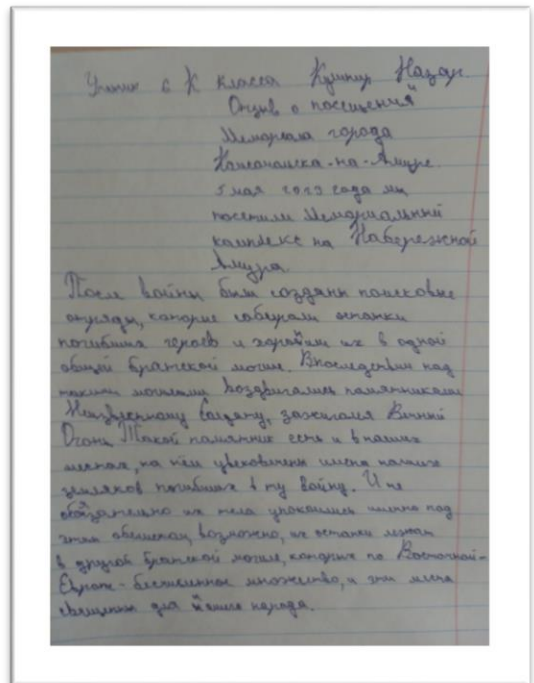 Ученик 6 К класса Кушнир Назар.
Отзыв о посещений
Мемориала города
Комсомольска-на-Амуре.
5 мая 2023 года мы
посетили Мемориальный
комплекс на Набережной
Амура.
После войны были созданы поисковые
отряды, которые собирали останки
погибших героев и хоронили их в одной
общей братской могиле. Впоследствии над
такими могилами воздвигались памятниками
Неизвестному Солдату, зажигался Вечный
Огонь. Такой памятник есть и в наших
местах, на нём увековечены имена наших
земляков погибших в ту войну. И не
обязательно их тела упокоились именно под
этим обелиском, возможно, их останки лежат
в другой братской могиле, которых по Восточной-
Европе - бесчисленное множество, и эти места
священны для нашего народа.